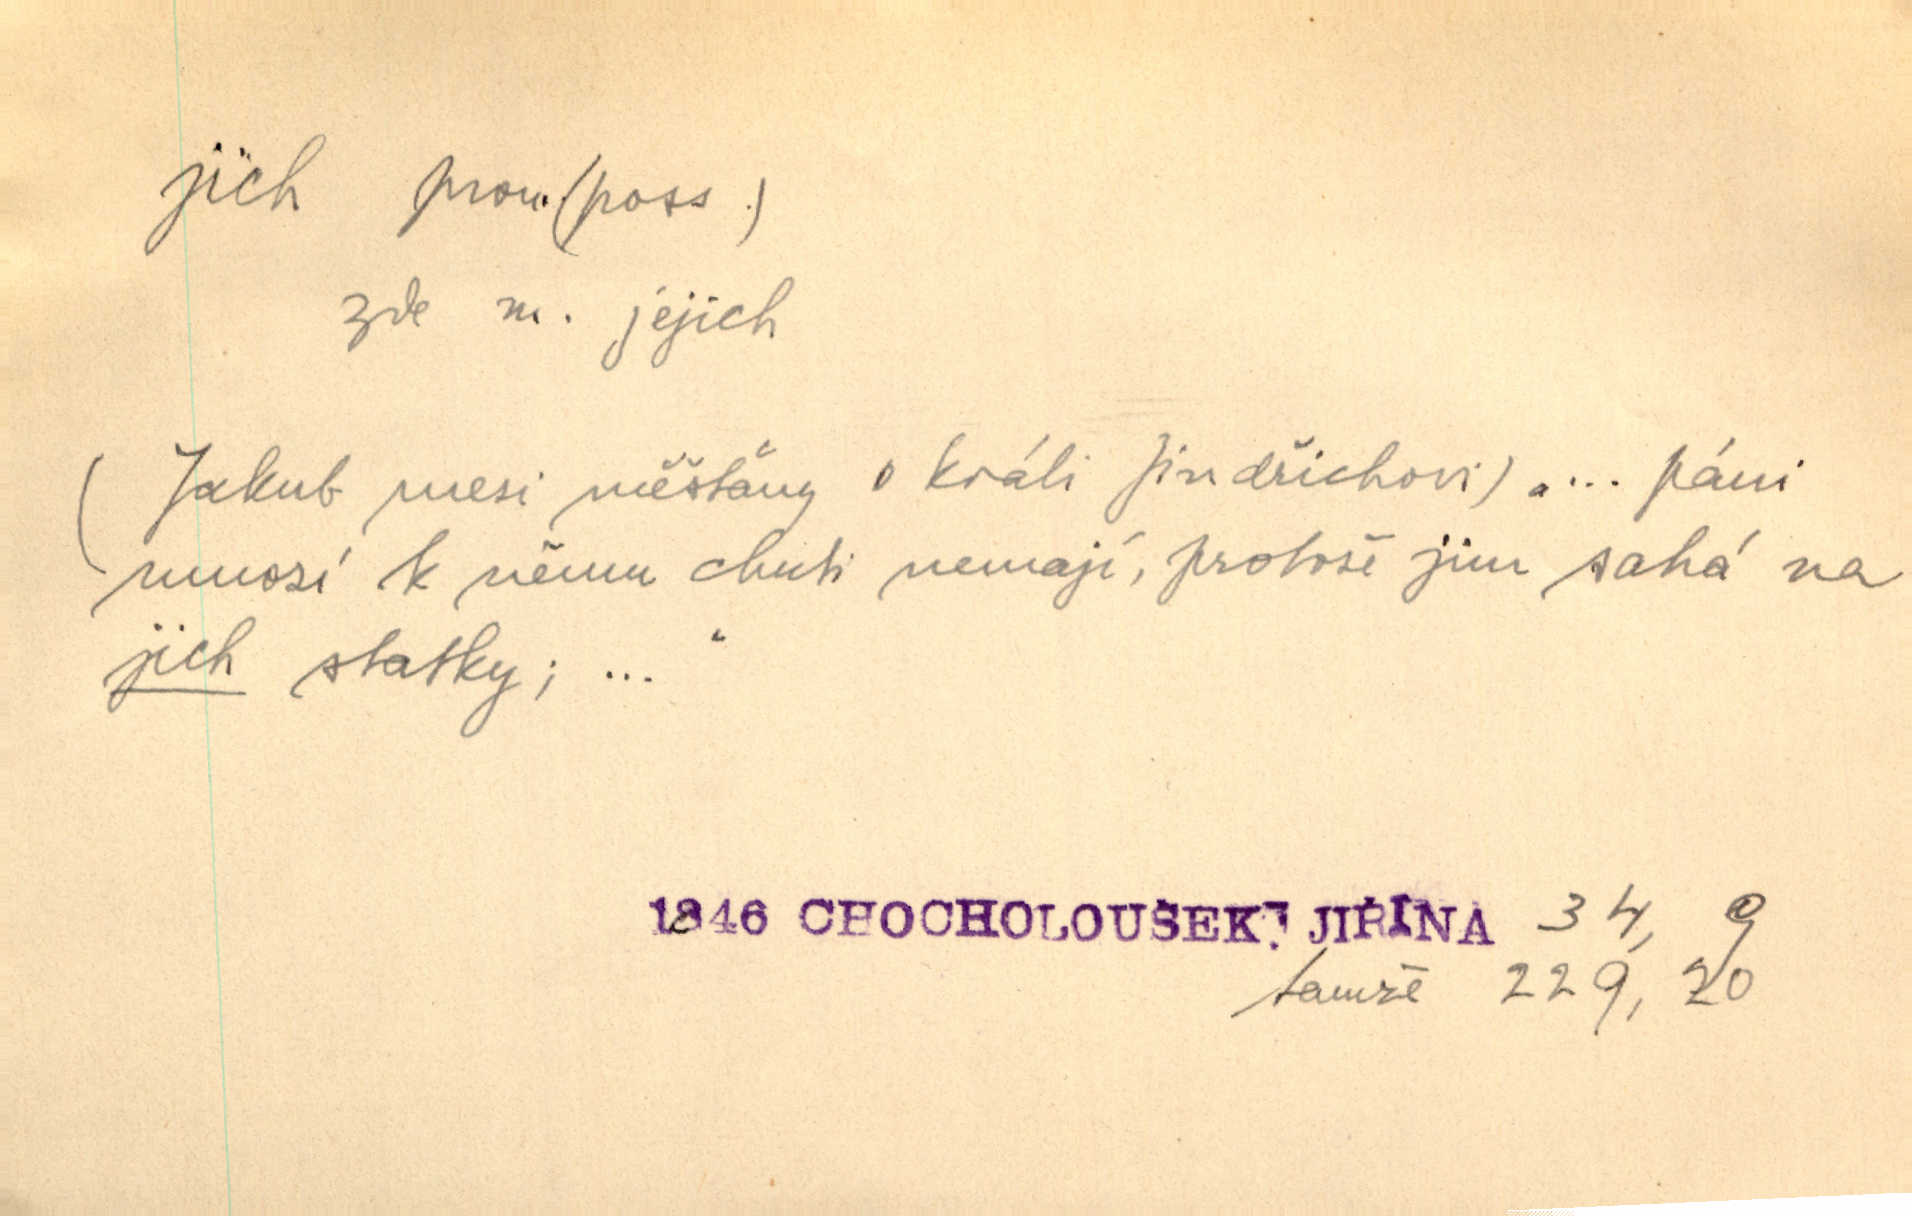 jich pron. (poss.)
zde m. jejich
(Jakub mezi měšťany o králi Jindřichovi) „... páni
mnozí k němu chuti nemají, protože jim sahá na
jich statky; ..."
1846 CHOCHOLOUŠEK: JIŘINA 34, 9
tamže 229, 20